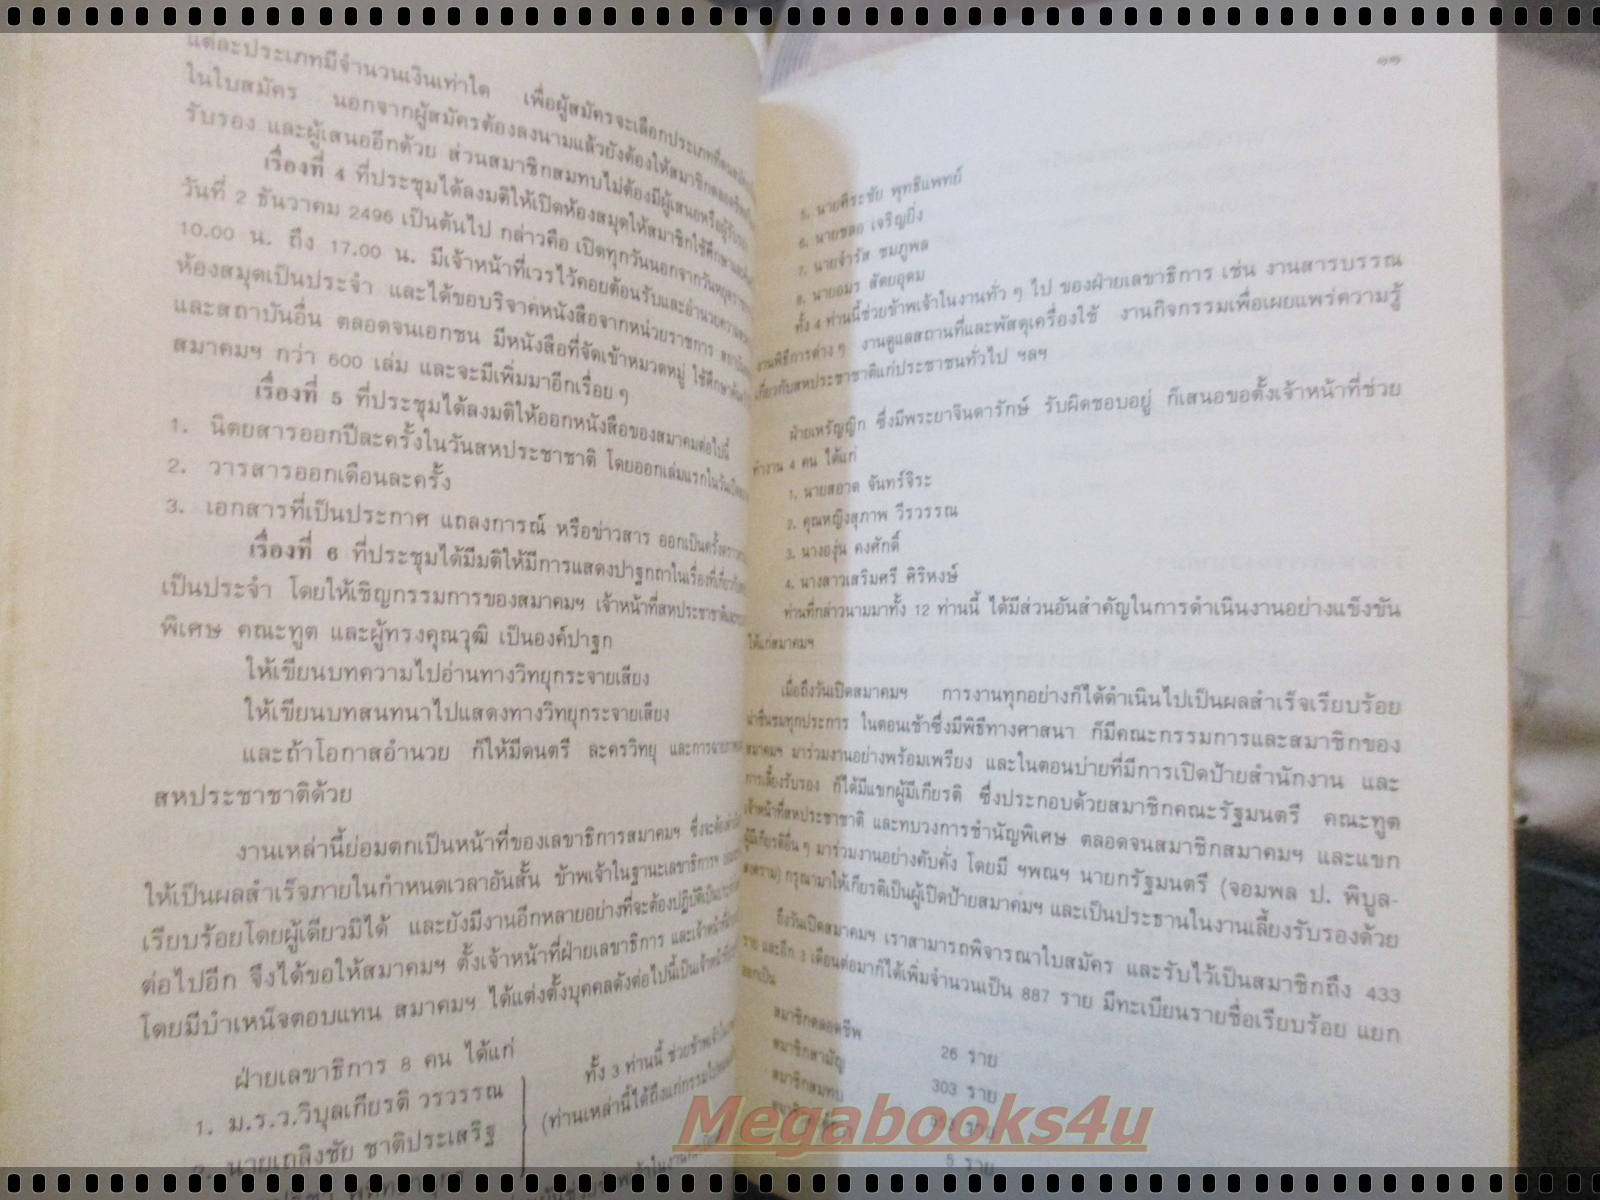 แต่ละประเภทมีจำนวนเงินเท่าใด เพื่อผู้สมัครจะเลือกประเภท
ในใบสมัคร นอกจากผู้สมัครต้องลงนามแล้วยังต้องให้สมาชิก
รับรอง และผู้เสนออีกด้วย ส่วนสมาชิกสมทบไม่ต้องมีผู้เสนอหรือผู้รับรอง
เรื่องที่ 4 ที่ประชุมได้ลงมติให้เปิดห้องสมุดให้สมาชิกใช้ศึกษา
วันที่ 2 ธันวาคม 2496 เป็นต้นไป กล่าวคือ เปิดทุกวันนอกจากวันหยุด
10.00 น. ถึง 17.00 น. มีเจ้าหน้าที่เวรไว้คอยต้อนรับและอำนวยความ
ห้องสมุดเป็นประจำ และได้ขอบริจาคหนังสือจากหน่วยราชการ
และสถาบันอื่น ตลอดจนเอกชน มีหนังสือที่จัดเข้าหมวดหมู่ ใช้ศึกษา
สมาคมฯ กว่า 600 เล่ม และจะมีเพิ่มมาอีกเรื่อย ๆ
เรื่องที่ 5 ที่ประชุมได้ลงมติให้ออกหนังสือของสมาคมต่อไปนี้
1. นิตยสารออกปีละครั้งในวันสหประชาชาติ โดยออกเล่มแรกในวัน
2. วารสารออกเดือนละครั้ง
3. เอกสารที่เป็นประกาศ แถลงการณ์ หรือข่าวสาร ออกเป็นครั้ง
เรื่องที่ 6 ที่ประชุมได้มีมติให้มีการแสดงปาฐกถาในเรื่องที่เกี่ยวกับ
เป็นประจำ โดยให้เชิญกรรมการของสมาคมฯ เจ้าหน้าที่สหประชาชาติและ
พิเศษ คณะทูต และผู้ทรงคุณวุฒิ เป็นองค์ปาฐก
ให้เขียนบทความไปอ่านทางวิทยุกระจายเสียง
ให้เขียนบทสนทนาไปแสดงทางวิทยุกระจายเสียง
และถ้าโอกาสอำนวย ก็ให้มีดนตรี ละครวิทยุ และการฉายภาพ
สหประชาชาติด้วย
งานเหล่านี้ย่อมตกเป็นหน้าที่ของเลขาธิการสมาคมฯ ซึ่งจะต้อง
ให้เป็นผลสำเร็จภายในกำหนดเวลาอันสั้น ข้าพเจ้าในฐานะเลขาธิการฯ
เรียบร้อยโดยผู้เดียวมิได้ และยังมีงานอีกหลายอย่างที่จะต้องปฏิบัติเป็น
ต่อไปอีก จึงได้ขอให้สมาคมฯ ตั้งเจ้าหน้าที่ฝ่ายเลขาธิการ และเจ้าหน้าที่
โดยมีบำเหน็จตอบแทน สมาคมฯ ได้แต่งตั้งบุคคลดังต่อไปนี้เป็นเจ้าหน้าที่
ฝ่ายเลขาธิการ 8 คน ได้แก่
1. ม.ร.ว.วิบุลเกียรติ วรวรรณ
2. นายเถลิงชัย ชาติประเสริฐ
ทั้ง 3 ท่านนี้ ช่วยข้าพเจ้าใน
(ท่านเหล่านี้ได้ถึงแก่กรรมไป
๑๑
5. นายศิระชัย พุทธิแพทย์
6. นายชลอ เจริญยิ่ง
7. นายจำรัส ชมภูพล
8. นายอมร สัตยอุดม
ทั้ง 4 ท่านนี้ช่วยข้าพเจ้าในงานทั่ว ๆ ไป ของฝ่ายเลขาธิการ เช่น งานสารบรรณ
งานพิธีการต่าง ๆ งานดูแลสถานที่และพัสดุเครื่องใช้ งานกิจกรรมเพื่อเผยแพร่ความรู้
เกี่ยวกับสหประชาชาติแก่ประชาชนทั่วไป ฯลฯ
ฝ่ายเหรัญญิก ซึ่งมีพระยาจินดารักษ์ รับผิดชอบอยู่ ก็เสนอขอตั้งเจ้าหน้าที่ช่วย
ทำงาน 4 คน ได้แก่
1. นายสอาด จันทร์จิระ
2. คุณหญิงสุภาพ วีรวรรณ
3. นางองุ่น คงศักดิ์
4. นางสาวเสริมศรี ศิริหงษ์
ท่านที่กล่าวนามมาทั้ง 12 ท่านนี้ ได้มีส่วนอันสำคัญในการดำเนินงานอย่างแข็งขัน
ให้แก่สมาคมฯ
เมื่อถึงวันเปิดสมาคมฯ การงานทุกอย่างก็ได้ดำเนินไปเป็นผลสำเร็จเรียบร้อย
น่าชื่นชมทุกประการ ในตอนเช้าซึ่งมีพิธีทางศาสนา ก็มีคณะกรรมการและสมาชิกของ
สมาคมฯ มาร่วมงานอย่างพร้อมเพรียง และในตอนบ่ายที่มีการเปิดป้ายสำนักงาน และ
การเลี้ยงรับรอง ก็ได้มีแขกผู้มีเกียรติ ซึ่งประกอบด้วยสมาชิกคณะรัฐมนตรี คณะทูต
เจ้าหน้าที่สหประชาชาติ และทบวงการชำนัญพิเศษ ตลอดจนสมาชิกสมาคมฯ และแขก
ผู้มีเกียรติอื่น ๆ มาร่วมงานอย่างคับคั่ง โดยมี ฯพณฯ นายกรัฐมนตรี (จอมพล ป. พิบูล-
สงคราม) กรุณามาให้เกียรติเป็นผู้เปิดป้ายสมาคมฯ และเป็นประธานในงานเลี้ยงรับรองด้วย
ถึงวันเปิดสมาคมฯ เราสามารถพิจารณาใบสมัคร และรับไว้เป็นสมาชิกถึง 433
ราย และอีก 3 เดือนต่อมาก็ได้เพิ่มจำนวนเป็น 887 ราย มีทะเบียนรายชื่อเรียบร้อย แยก
ออกเป็น
สมาชิกตลอดชีพ 26 ราย
สมาชิกสามัญ 303 ราย
สมาชิกสมทบ ราย
5 ราย
Megabooks4u